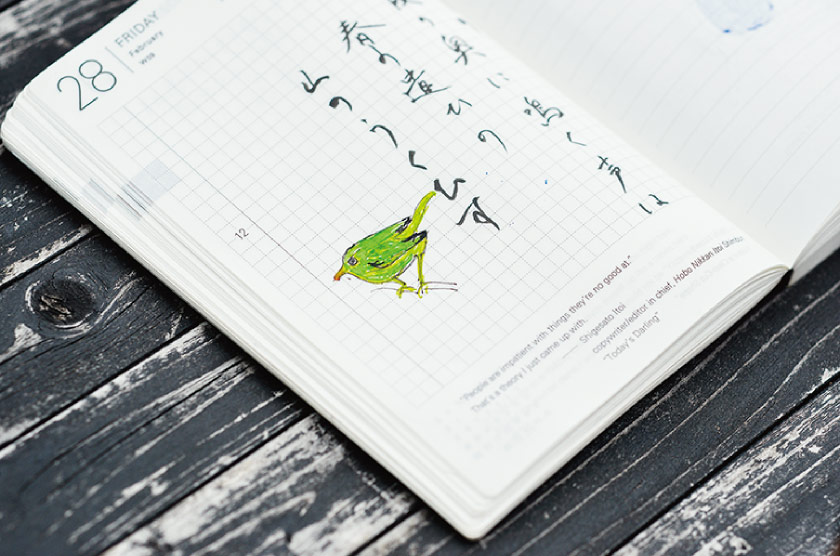 28
FRIDAY
February
w09
奥に鳴く声は
春の遣ひの
山のうくひす
12
"People are impatient with things they're no good at."
That's a theory I just came up with.
—— Shigesato Itoi
copywriter/editor in chief, Hobo Nikkan Itoi Shinbun
"Today's Darling"